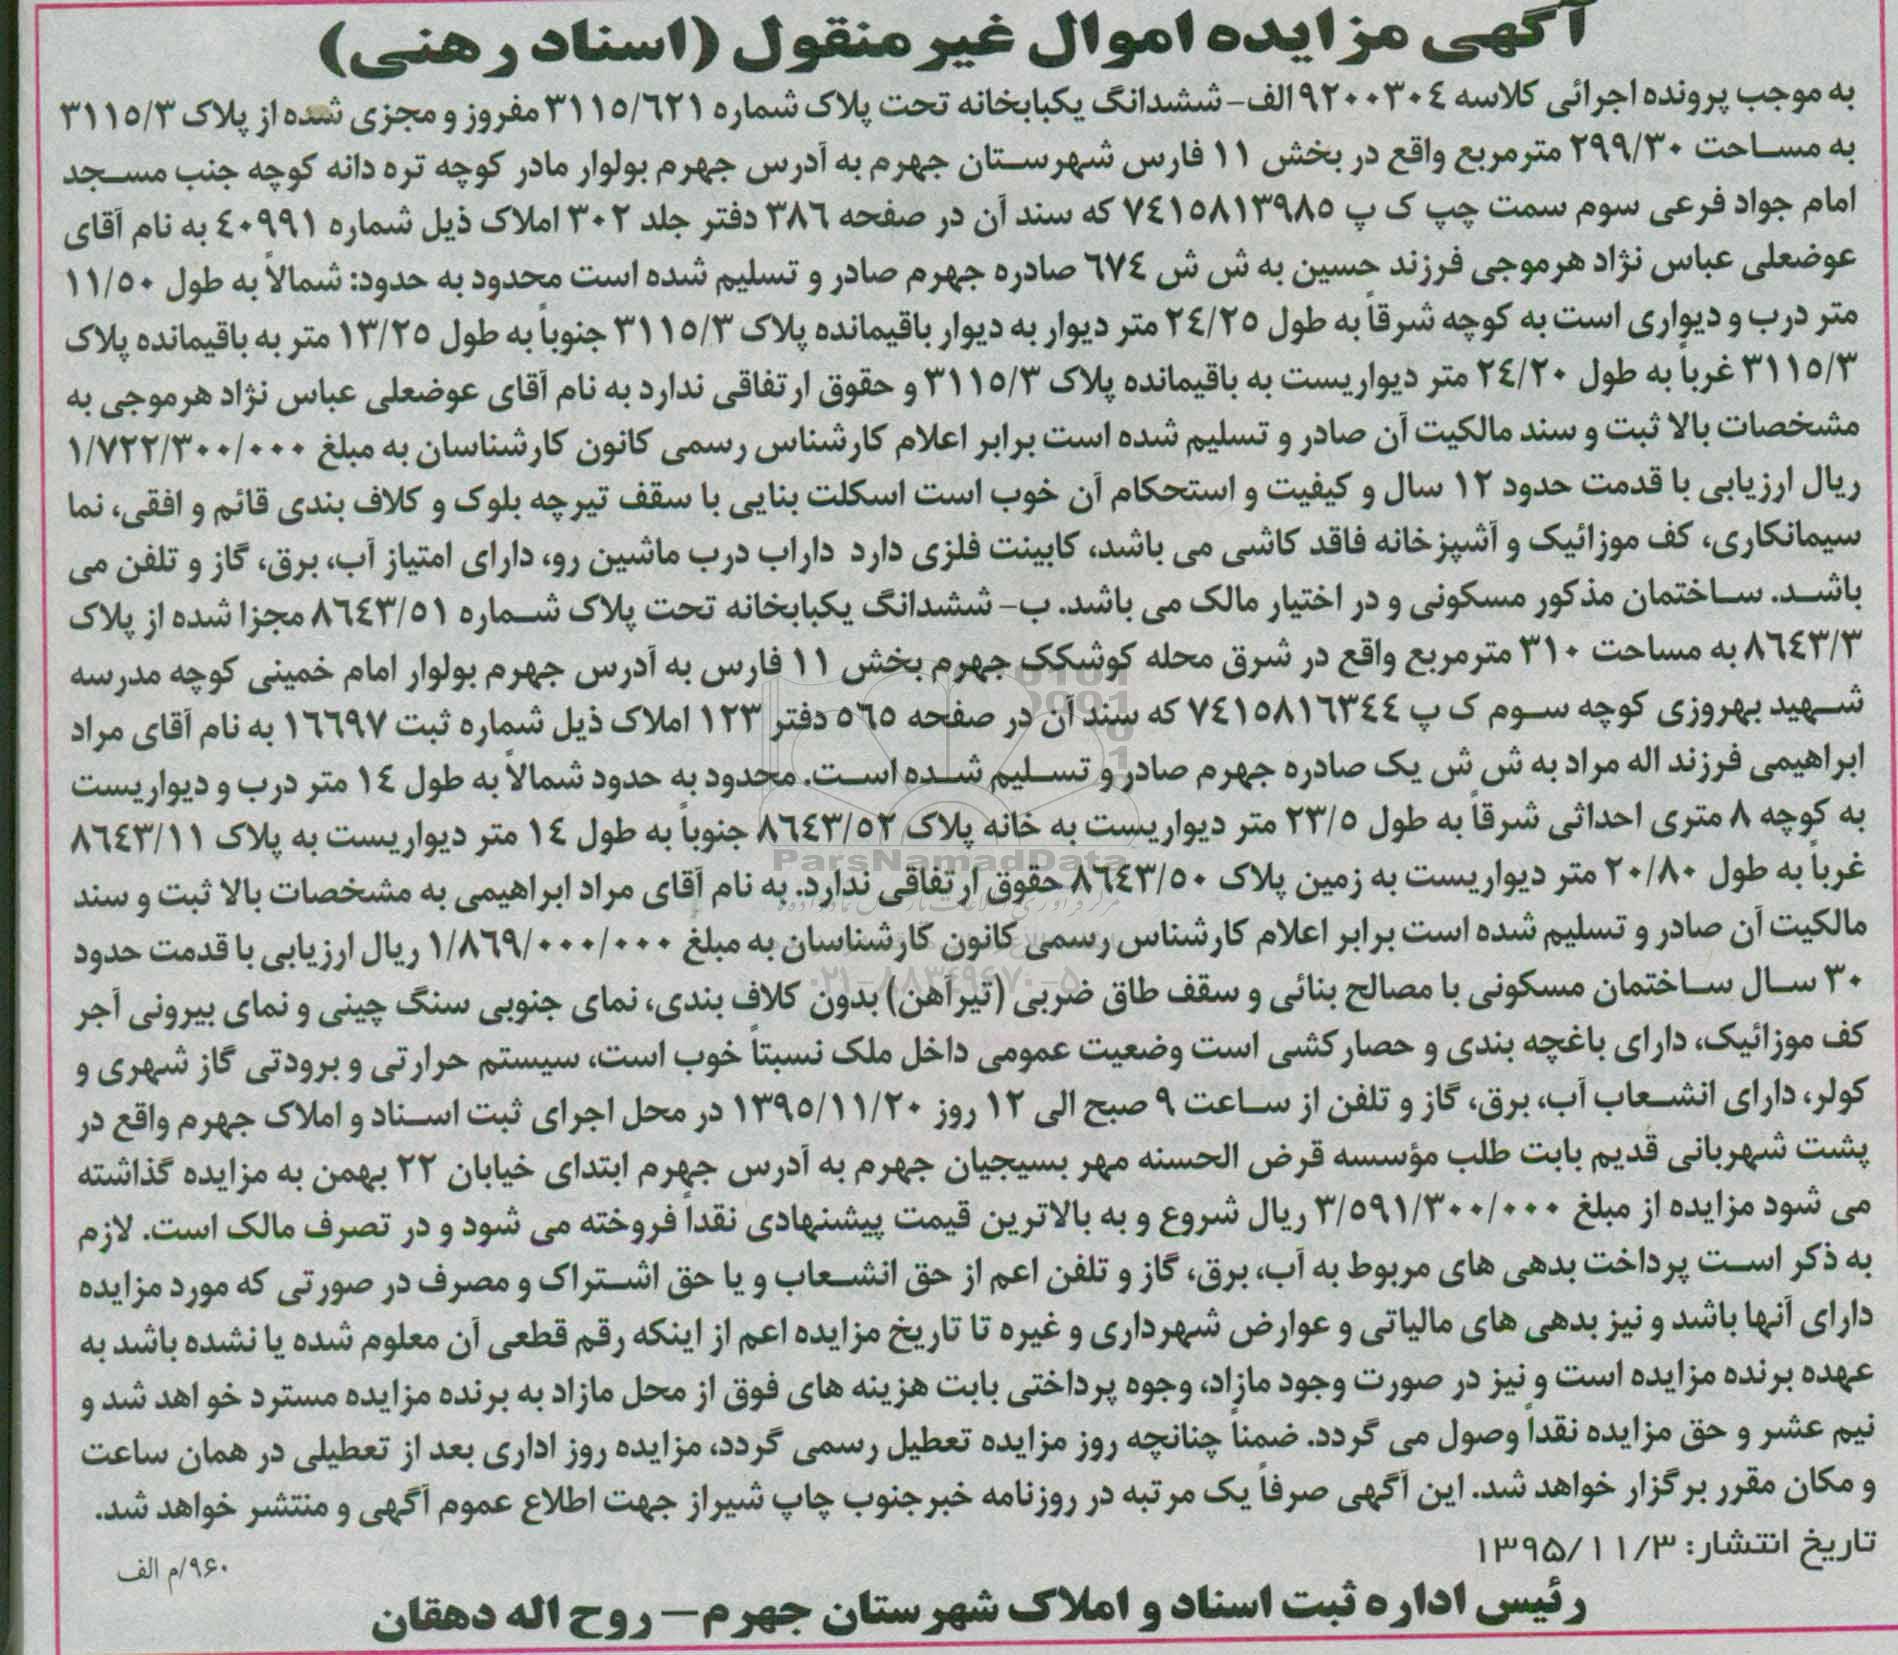 آگهی مزایده اموال غیر منقول (اسناد رهنی)
به موجب پرونده اجرائی کلاسه ۹۲۰۰۳۰۴ الف- ششدانگ یکبابخانه تحت پلاک شماره ۳۱۱۵/۶۲۱ مفروز و مجزی شده از پلاک ۳۱۱۵/۳
به مساحت ۲۹۹/۳۰ مترمربع واقع در بخش ۱۱ فارس شهرستان جهرم به آدرس جهرم بولوار مادر کوچه تره دانه کوچه جنب مسجد
امام جواد فرعی سوم سمت چپ ک پ ۷۴۱۵۸۱۳۹۸۵ که سند آن در صفحه ۳۸۶ دفتر جلد ۳۰۲ املاک ذیل شماره ۴۰۹۹۱ به نام آقای
عوضعلی عباس نژاد هرموجی فرزند حسین به ش ش ۶۷۴ صادره جهرم صادر و تسلیم شده است محدود به حدود: شمالاً به طول ۱۱/۵۰
متر درب و دیواری است به کوچه شرقاً به طول ۲۴/۲۵ متر دیوار به دیوار باقیمانده پلاک ۳۱۱۵/۳ جنوباً به طول ۱۳/۲۵ متر به باقیمانده پلاک
۳۱۱۵/۳ غرباً به طول ۲۴/۲۰ متر دیواریست به باقیمانده پلاک ۳۱۱۵/۳ و حقوق ارتفاقی ندارد به نام آقای عوضعلی عباس نژاد هرموجی به
مشخصات بالا ثبت و سند مالکیت آن صادر و تسلیم شده است برابر اعلام کارشناس رسمی کانون کارشناسان به مبلغ ۱/۷۲۲/۳۰۰/۰۰۰
ریال ارزیابی با قدمت حدود ۱۲ سال و کیفیت و استحکام آن خوب است اسکلت بنایی با سقف تیرچه بلوک و کلاف بندی قائم و افقی، نما
سیمانکاری، کف موزائیک و آشپزخانه فاقد کاشی می باشد، کابینت فلزی دارد داراب درب ماشین رو، دارای امتیاز آب، برق، گاز و تلفن می
باشد. ساختمان مذکور مسکونی و در اختیار مالک می باشد. ب- ششدانگ یکبابخانه تحت پلاک شماره ۸۶۴۳/۵۱ مجزا شده از پلاک
۸۶۴۳/۳ به مساحت ۳۱۰ مترمربع واقع در شرق محله کوشکک جهرم بخش ۱۱ فارس به آدرس جهرم بولوار امام خمینی کوچه مدرسه
شهید بهروزی کوچه سوم ک پ ۷۴۱۵۸۱۶۳۴۴ که سند آن در صفحه ۵۶۵ دفتر ۱۲۳ املاک ذیل شماره ثبت ۱۶۶۹۷ به نام آقای مراد
ابراهیمی فرزند اله مراد به ش ش یک صادره جهرم صادر و تسلیم شده است. محدود به حدود شمالاً به طول ۱۴ متر درب و دیواریست
به کوچه ۸ متری احداثی شرقاً به طول ۲۳/۵ متر دیواریست به خانه پلاک ۸۶۴۳/۵۲ جنوباً به طول ۱۴ متر دیواریست به پلاک ۸۶۴۳/۱۱
غرباً به طول ۲۰/۸۰ متر دیواریست به زمین پلاک ۸۶۴۳/۵۰ حقوق ارتفاقی ندارد. به نام آقای مراد ابراهیمی به مشخصات بالا ثبت و سند
مالکیت آن صادر و تسلیم شده است برابر اعلام کارشناس رسمی کانون کارشناسان به مبلغ ۱/۸۶۹/۰۰۰/۰۰۰ ریال ارزیابی با قدمت حدود
۳۰ سال ساختمان مسکونی با مصالح بنائی و سقف طاق ضربی (تیرآهن) بدون کلاف بندی، نمای جنوبی سنگ چینی و نمای بیرونی آجر
کف موزائیک، دارای باغچه بندی و حصارکشی است وضعیت عمومی داخل ملک نسبتاً خوب است، سیستم حرارتی و برودتی گاز شهری و
کولر، دارای انشعاب آب، برق، گاز و تلفن از ساعت ۹ صبح الی ۱۲ روز ۱۳۹۵/۱۱/۲۰ در محل اجرای ثبت اسناد و املاک جهرم واقع در
پشت شهربانی قدیم بابت طلب مؤسسه قرض الحسنه مهر بسیجیان جهرم به آدرس جهرم ابتدای خیابان ۲۲ بهمن به مزایده گذاشته
می شود مزایده از مبلغ ۳/۵۹۱/۳۰۰/۰۰۰ ریال شروع و به بالاترین قیمت پیشنهادی نقداً فروخته می شود و در تصرف مالک است. لازم
به ذکر است پرداخت بدهی های مربوط به آب، برق، گاز و تلفن اعم از حق انشعاب و یا حق اشتراک و مصرف در صورتی که مورد مزایده
دارای آنها باشد و نیز بدهی های مالیاتی و عوارض شهرداری و غیره تا تاریخ مزایده اعم از اینکه رقم قطعی آن معلوم شده یا نشده باشد به
عهده برنده مزایده است و نیز در صورت وجود مازاد، وجوه پرداختی بابت هزینه های فوق از محل مازاد به برنده مزایده مسترد خواهد شد و
نیم عشر و حق مزایده نقداً وصول می گردد. ضمناً چنانچه روز مزایده تعطیل رسمی گردد، مزایده روز اداری بعد از تعطیلی در همان ساعت
و مکان مقرر برگزار خواهد شد. این آگهی صرفاً یک مرتبه در روزنامه خبرجنوب چاپ شیراز جهت اطلاع عموم آگهی و منتشر خواهد شد.
تاریخ انتشار: ۱۳۹۵/۱۱/۳
۹۶۰/م الف
رئیس اداره ثبت اسناد و املاک شهرستان جهرم – روح اله دهقان
ParsNamadData
۰۲۱-۸۸۳۴۹۶۷۰-۵